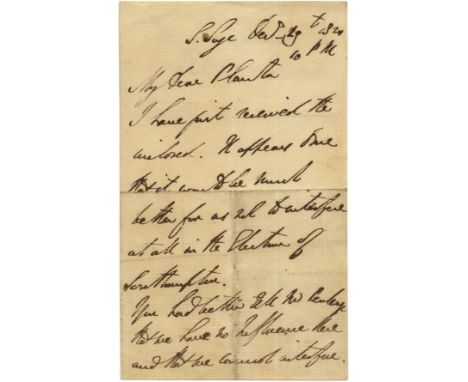 S. Saye Dec. 29th 1824
10 P M
My Dear Planta
I have just received the
inclosed. It appears to me
that it would be much
better for us not to interfere
at all in the Election of
Southampton.
You had better tell Mr
that we have no Influence here
and that we cannot interfere.